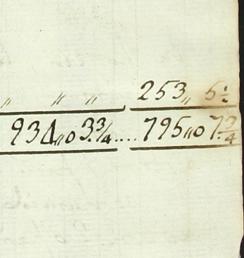 " " " 253 " 5½
934 " 0 3¾ .... 795 " 0 7¾